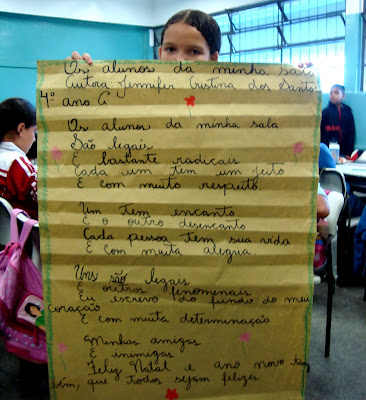 Os alunos da minha sala
Autora Jennifer Cristina dos Santos
4º ano A
Os alunos da minha sala
São legais
E bastante radicais
Cada um tem um jeito
E com muito respeito.
Um tem encanto
E o outro desencanto
Cada pessoa tem sua vida
E com muita alegria
Uns são legais
E outros fenomenais
Eu escrevo do fundo do meu
coração
E com muita determinação
Minhas amigas
E inimigas
Feliz Natal e ano novo tam
bém, que todos sejam felizes